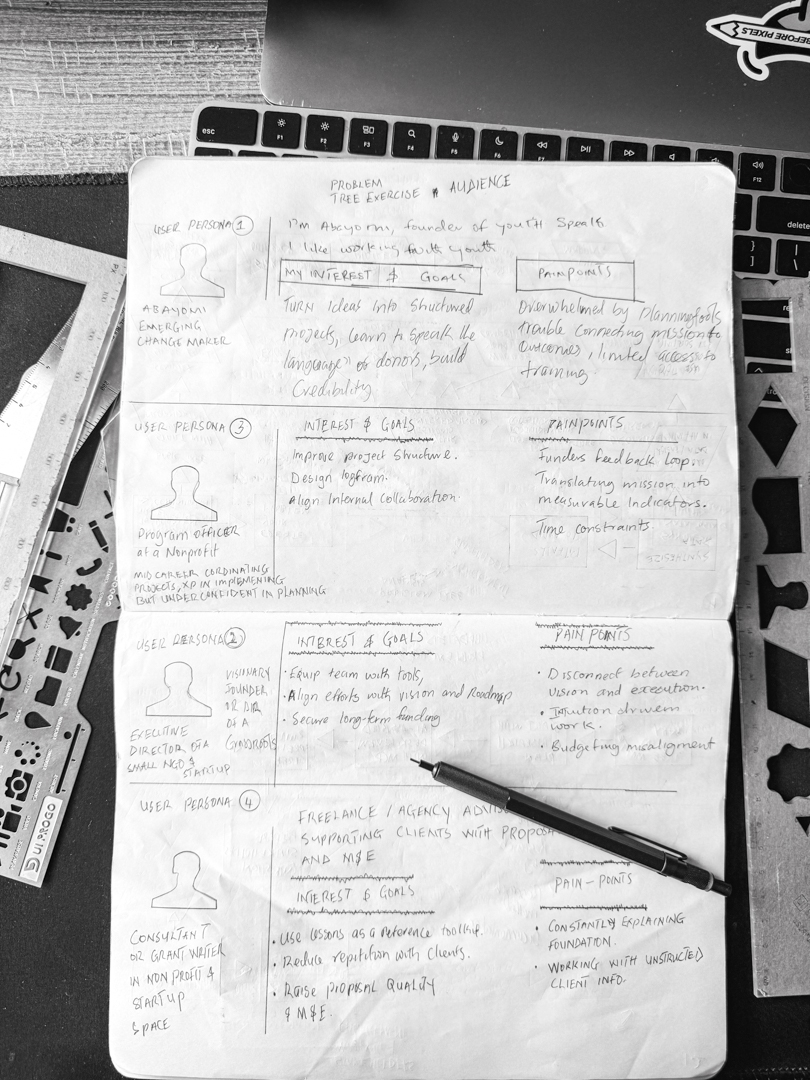 BEFORE PIXELS
esc
F1
F2
F3
F4
F5
F6
F7
F12
delete
PROBLEM
TREE EXERCISE AUDIENCE
USER PERSONA 1
I'm Abayomi, founder of youth Speak
I like working with youth
MY INTEREST & GOALS
PAINPOINTS
ABAYOMI
EMERGING
CHANGE MAKER
Turn Ideas into Structured
projects, learn to speak the
language of donors, build
Credibility.
Overwhelmed by Planning tools
trouble connecting mission to
outcomes, limited access to
training
USER PERSONA 3
INTEREST & GOALS
PAINPOINTS
Program OFFICER
at a Nonprofit
MID CAREER CORDINATING
PROJECTS, XP IN IMPLEMENTING
BUT UNDERCONFIDENT IN PLANNING
Improve project structure.
Design logfram.
Align Internal collaboration
Funders feedback Loop.
Translating mission into
measurable Indicators.
Time constraints
USER PERSONA 2
INTEREST & GOALS
PAIN POINTS
EXECUTIVE
DIRECTOR OF A
SMALL NGO & STARTUP
VISIONARY
FOUNDER
OR DIR
OF A
GRASSROOTS
· Equip team with tools,
· Align efforts with vision and Roadmap
· Secure long-term funding
· Disconnect between
vision and execution.
· Intuition driven
work.
· Budgeting misaligment
USER PERSONA 4
FREELANCE / AGENCY
SUPPORTING CLIENTS WITH
AND M&E
INTEREST & GOALS
PAIN-POINTS
CONSULTANT
OR GRANT WRITER
IN NON PROFIT &
STARTUP
SPACE
· Use lessons as a reference toolkit.
· Reduce repitition with clients.
· Raise proposal QUALITY
& M&E.
· CONSTANTLY EXPLAINING
FOUNDATION.
· WORKING WITH UNSTRUCTED
CLIENT INFO.
UI PROGO